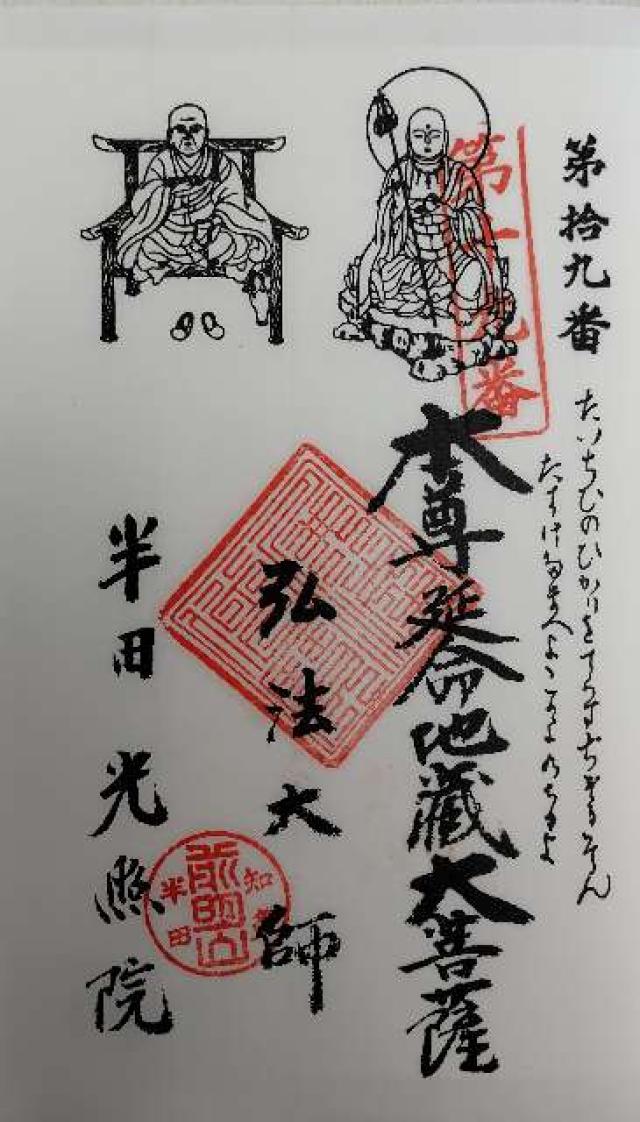 第拾九番
第十九番
たいちひのひかりをてらすぢぞうそん
たすけたまへよ
本尊延命地蔵大菩薩
弘法大師
半田光照院
知
半田